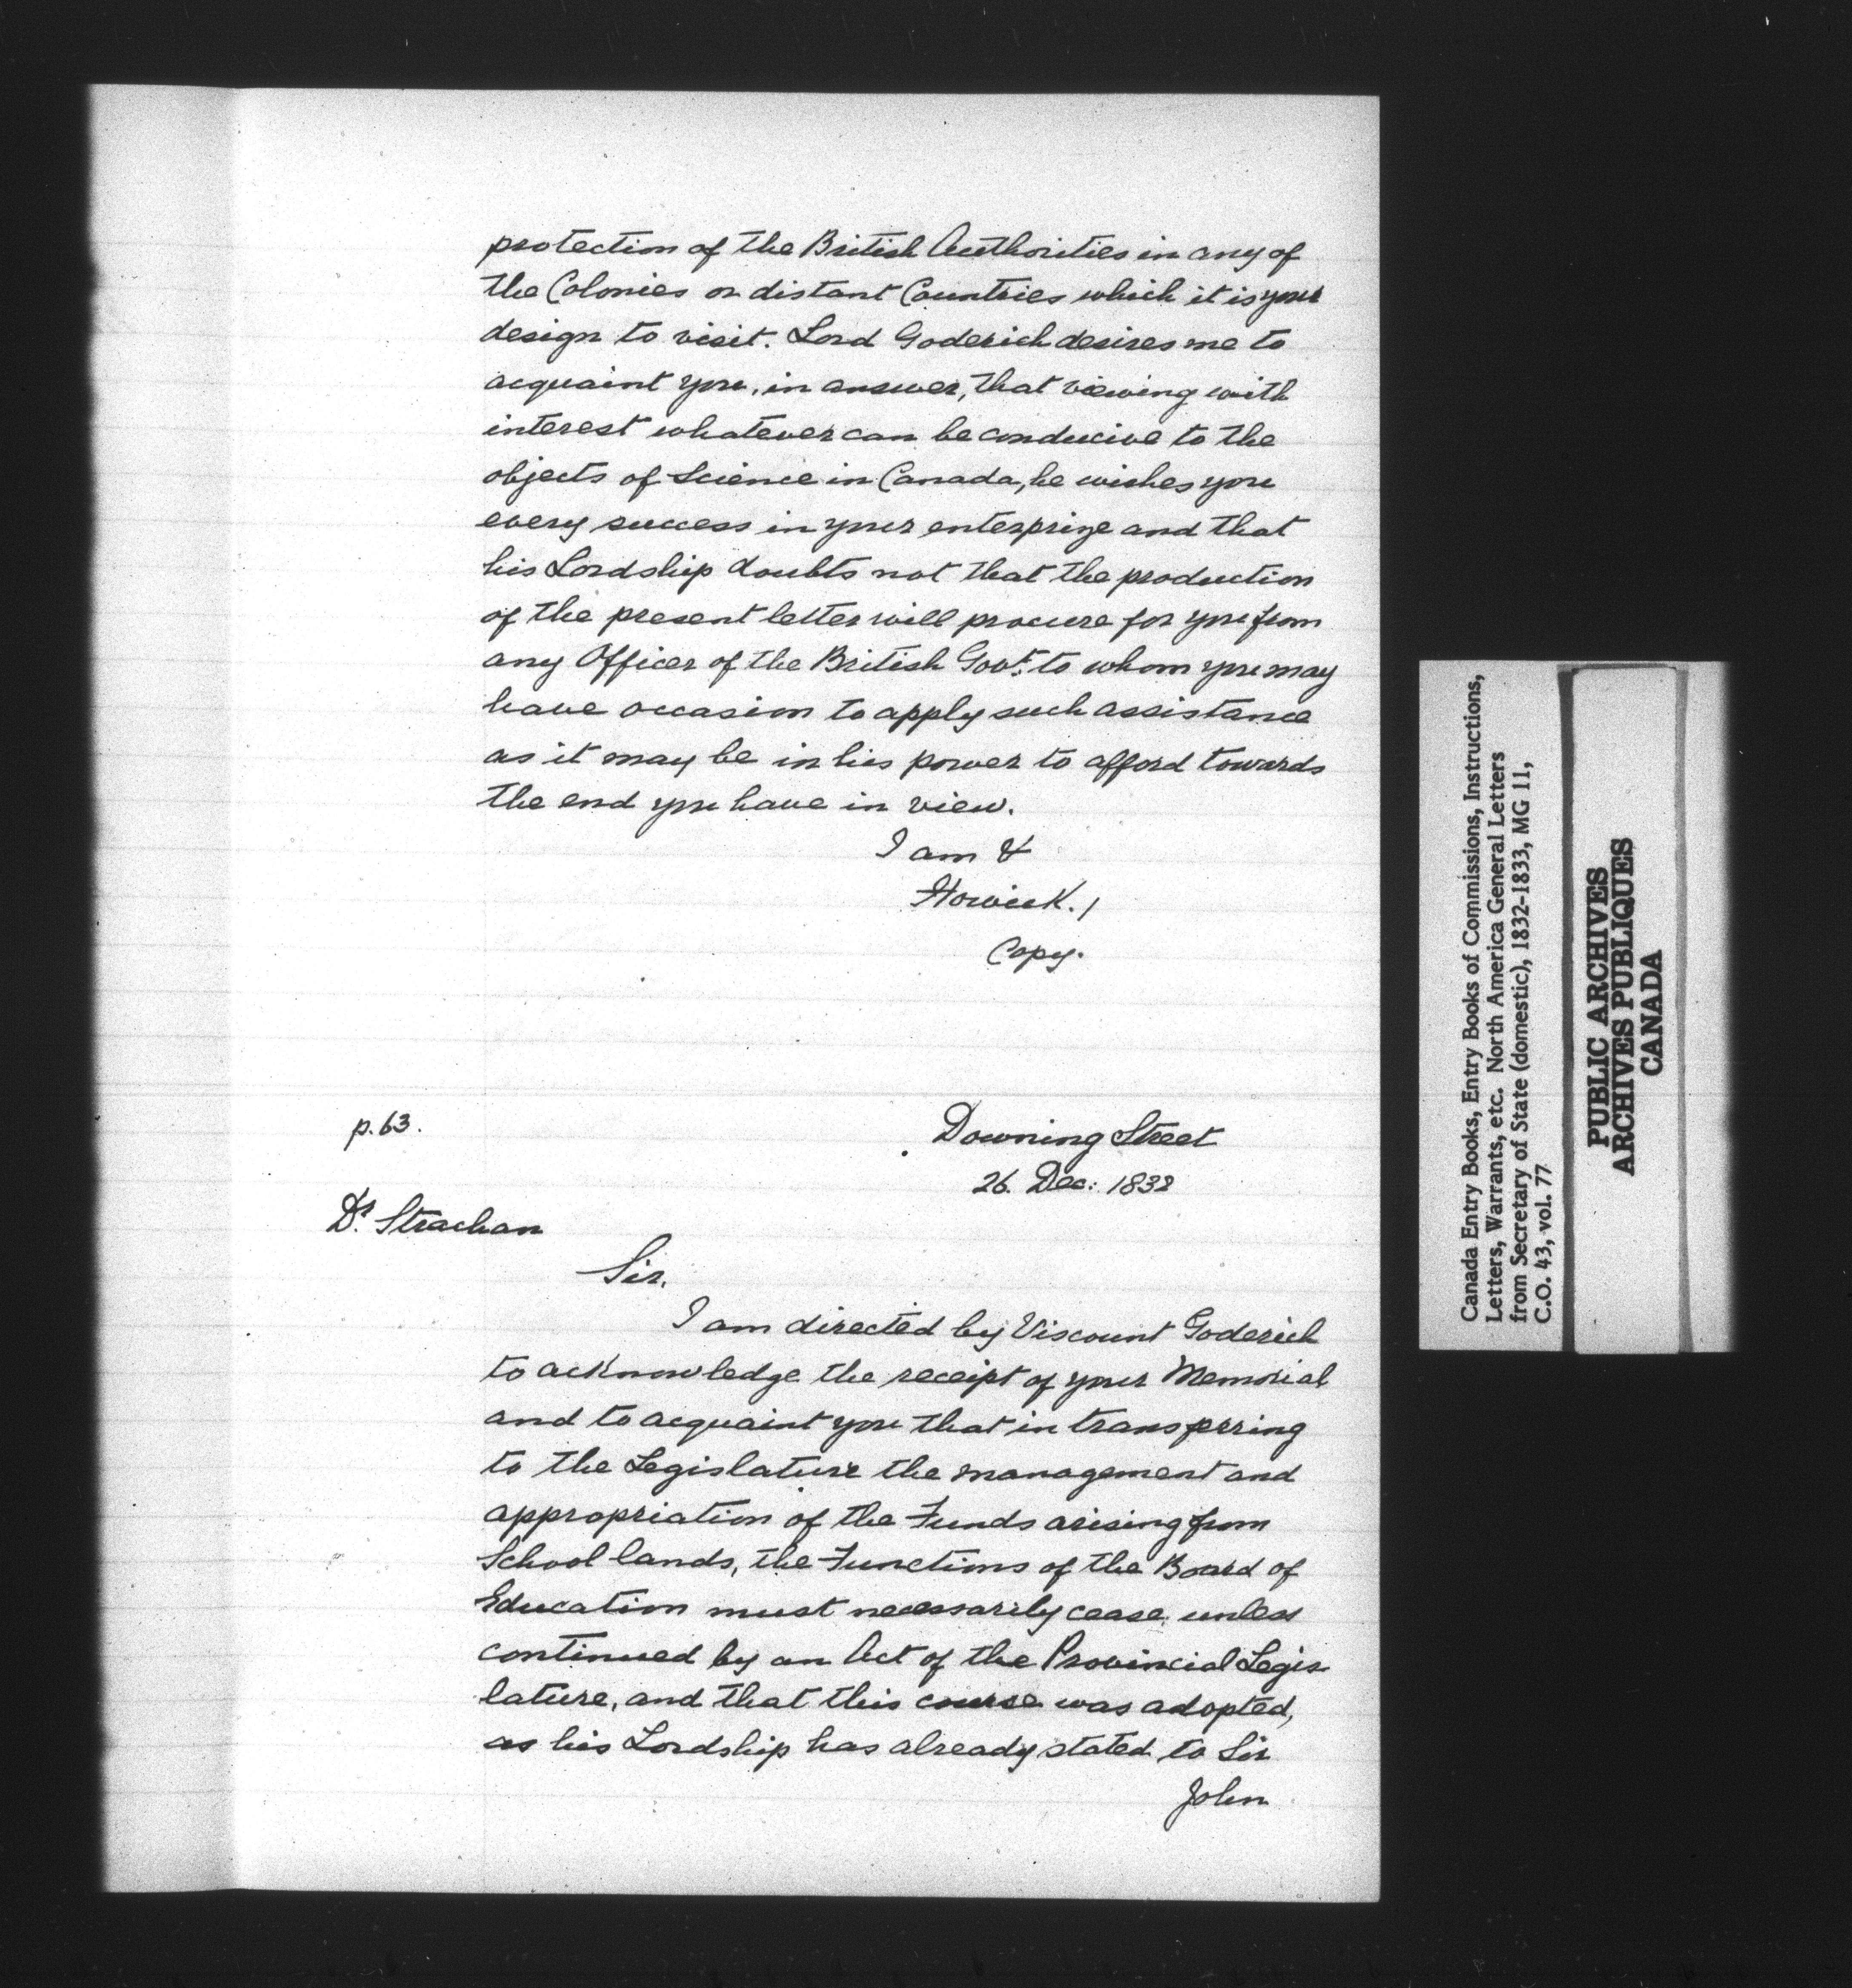 protection of the British Authorities in any of
the Colonies or distant Countries which it is your
design to visit. Lord Goderich desires me to
acquaint you, in answer, that viewing with
interest whatever can be conducive to the
objects of Science in Canada, he wishes you
every success in your enterprize and that
his Lordship doubts not that the production
of the present letter will procure for you from
any Officer of the British Govt. to whom you may
have occasion to apply such assistance
as it may be in his power to afford towards
the end you have in view.
I am &
Howick. /
Copy.
p. 63.
Downing Street
26. Dec: 1832
Dr. Strachan
Sir,
I am directed by Viscount Goderich
to acknowledge the receipt of your Memorial
and to acquaint you that in transferring
to the Legislature the management and
appropriation of the Funds arising from
School lands, the Functions of the Board of
Education must necessarily cease unless
continued by an Act of the Provincial Legis-
lature, and that this course was adopted,
as his Lordship has already stated to Sir
John
Canada Entry Books, Entry Books of Commissions, Instructions,
Letters, Warrants, etc. North America General Letters
from Secretary of State (domestic), 1832-1833, MG 11,
C.O. 43, vol. 77
PUBLIC ARCHIVES
ARCHIVES PUBLIQUES
CANADA